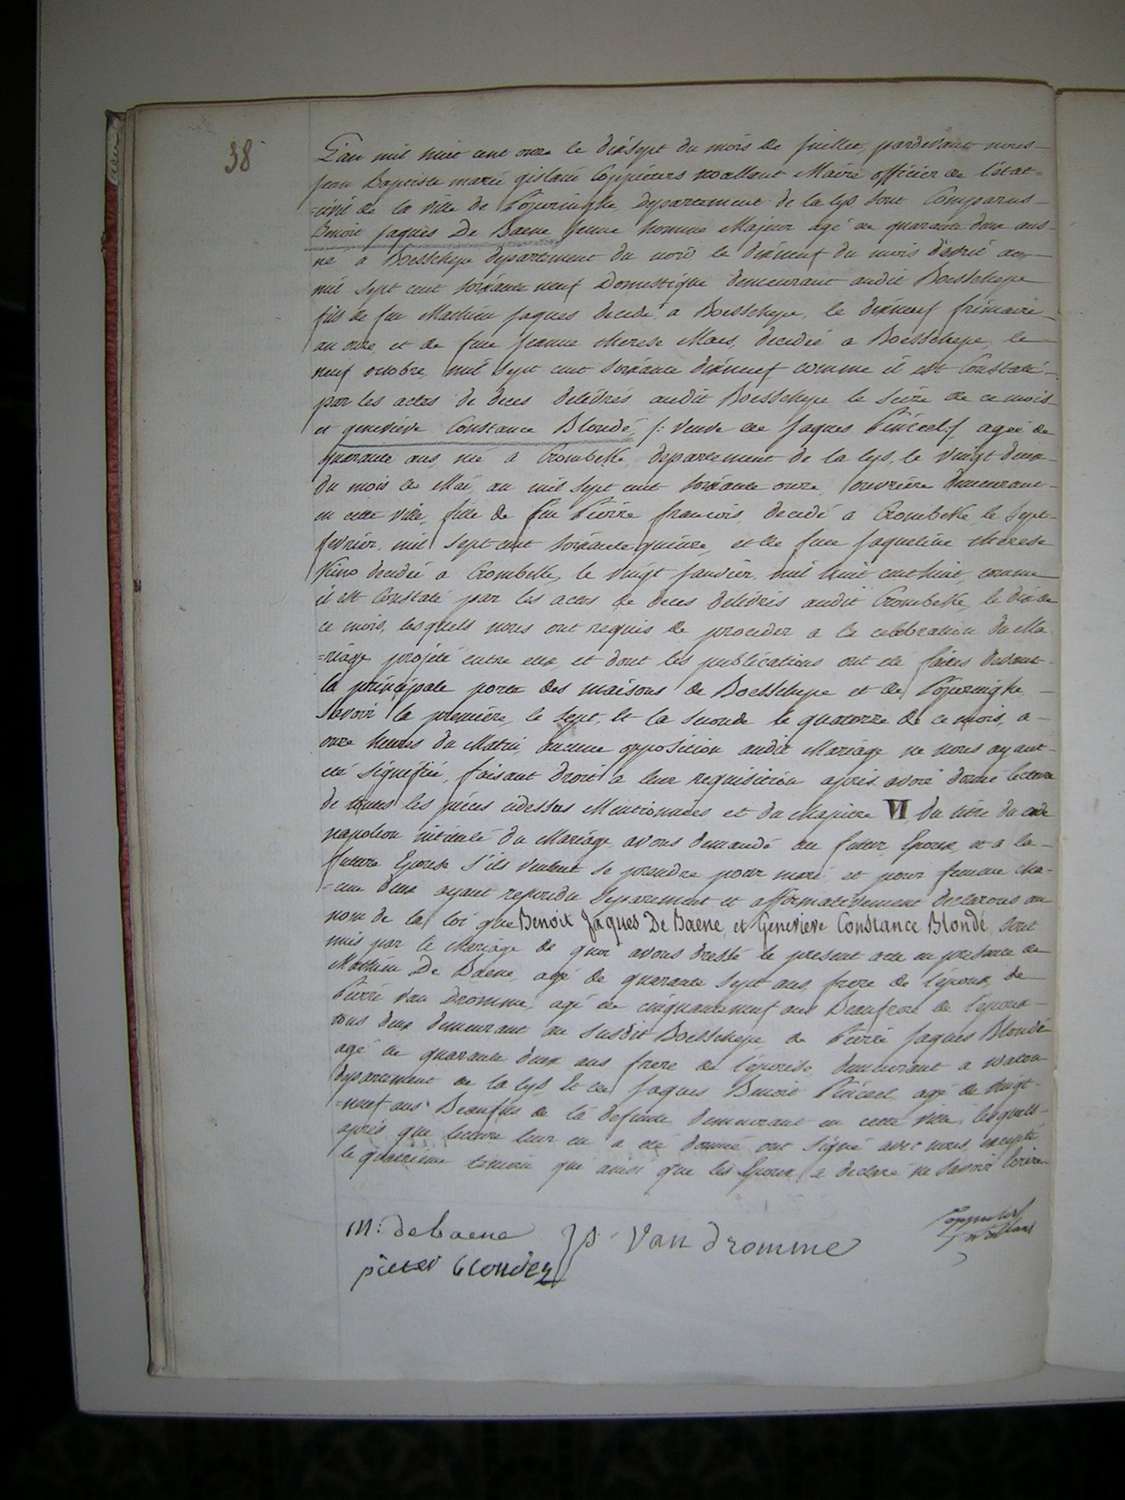 38
L'an mil huit cent onze le dixsept du mois de Juillet, pardevant nous
Jean Baptiste marie gislain Coppieters Wallant Maire officier de l'état=
=civil de la ville de Poperinghe Departement de la Lys sont Comparus
Benoit Jaques De Baene jeune homme Majeur agé de quarante deux ans
né a Boesschepe departement du nord le dixneuf du mois d'avril an
mil sept cent soixante neuf Domestique demeurant audit Boesschepe
fils de feu Mathieu Jaques decedé a Boesschepe, le dixneuf frimaire
an onze, et de feue Jeanne therese Maes, decedée a Boesschepe, le
neuf octobre, mil sept cent soixante dixneuf comme il est Constaté
par les actes de deces delivrés audit Boesschepe le seize de ce mois
et genevieve Constance Blondé, /: Veuve de Jaques Pinceel :/ agée de
quarante ans, née a Crombeke departement de la lys, le vingt deux
du mois de Mai, an mil sept cent soixante onze, ouvrière demeurant
en cette ville, fille de feu Pierre francois decedé a Crombeke, le sept
fevrier, mil sept cent soixante quinze, et de feue Jaqueline therese
decedée a Crombeke, le vingt Janvier, mil huit cent huit, comme
il est Constaté par les actes de deces delivrés audit Crombeke, le dix de
ce mois, lesquels nous ont requis de proceder a la celebration du Ma
=riage projeté entre eux, et dont les publications ont été faites devant
la principale porte des maisons de Boesschepe et de Poperinghe
savoir la première, le sept, Et la seconde le quatorze de ce mois, a
onze heures du Matin aucune opposition audit Mariage ne nous ayant
eté signifiée, faisant droit a leur requisition après avoir donné lecture
de toutes les pièces cidessus Mentionnées et du chapitre VI du titre du code
napoleon intitulé du Mariage, avons demandé au futur Epoux et a la
future Epouse s'ils veulent se prendre pour mari et pour femme cha=
=cun d'eux ayant repondu separement et affirmativement declarons au
nom de la loi que Benoit Jaques De Baene, et Genevieve Constance Blondé, sont
unis par le Mariage de quoi avons dressé le present acte en presence de
Mathieu De Baene, agé de quarante sept ans, frere de l'époux, de
Pierre Van Dromme, agé de cinquanteneuf ans Beaufrere de l'époux
tous deux demeurant au susdit Boesschepe de Pierre Jaques Blondé
agé de quarante deux ans frere de l'épouse, demeurant a watou
departement de la lys Et de Jaques Benoit Pinceel agé de vingt
=neuf ans Beaufils de la defunte demeurant en cette ville, lesquels
après que lecture leur en a eté donnée ont signé avec nous, excepté
le quatrieme temoin qui ainsi que les Epoux a declaré ne savoir Ecrire
m: debaene P Van dromme
pieter blondez